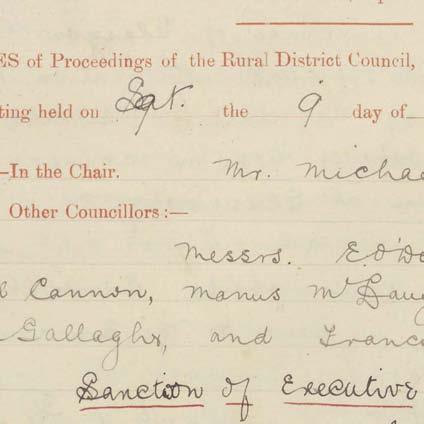 ES of Proceedings of the Rural District Council,
ting held on Sat. the 9 day of
—In the Chair. Mr. Michae
Other Councillors:—
Messrs. E. O'Do
Cannon, Manus McLaug
Gallagher, and Franc
Sanction of Executive